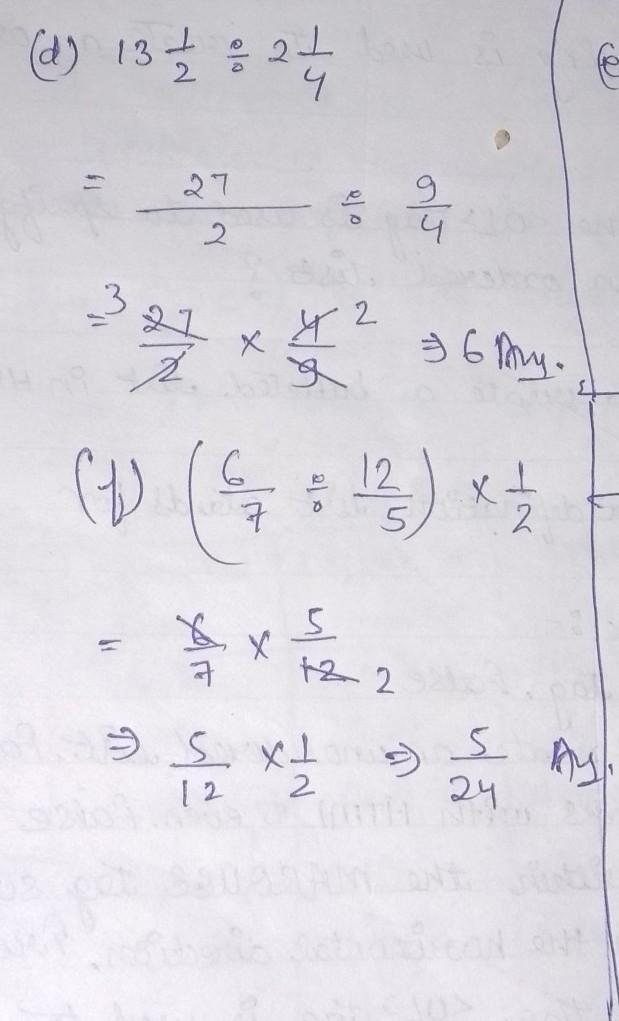 (d) 13 1/2 ÷ 2 1/4
= 27/2 ÷ 9/4
= 3 27/2 × 4/9 2 ⇒ 6 Ans.
(f) (6/7 ÷ 12/5) × 1/2
= 6/7 × 5/12 2
⇒ 5/12 × 1/2 ⇒ 5/24 Ans.
(e